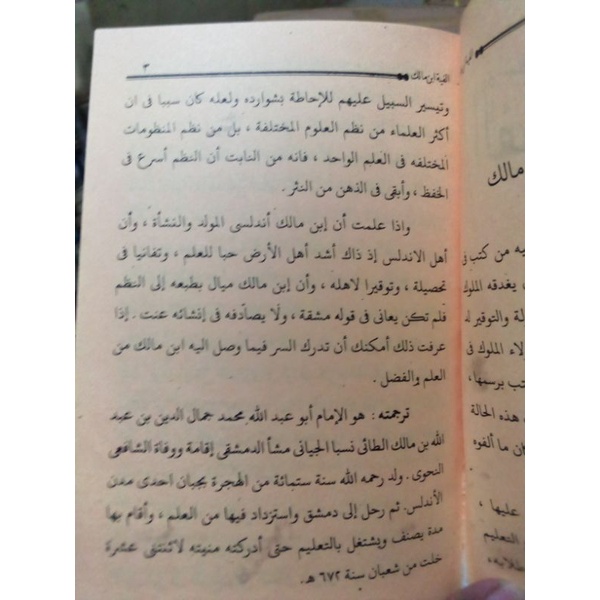 الفية ابن مالك
٣
وتيسير السبيل عليهم للإحاطة بشوارده ولعله كان سببا فى ان
أكثر العلماء من نظم العلوم المختلفة ، بل من نظم المنظومات
المختلفه فى العلم الواحد ، فانه من الثابت أن النظم أسرع فى
الحفظ ، وأبقى فى الذهن من النثر .
واذا علمت أن إبن مالك أندلسى المولد والنشأة ، وأن
أهل الاندلس إذ ذاك أشد أهل الأرض حبا للعلم ، وتفانيا فى
تحصيلة ، وتوقيرا لاهله ، وأن إبن مالك ميال بطبعه إلى النظم
فلم تكن يعانى فى قوله مشقة ، ولا يصادفه فى إنشائه عنت . إذا
عرفت ذلك أمكنك أن تدرك السر فيما وصل اليه ابن مالك من
العلم والفضل .
ترجمته : هو الإمام أبو عبد الله محمد جمال الدين بن عبد
الله بن مالك الطائى نسبا الجيانى منشأ الدمشقى إقامة ووفاة الشافعى
النحوى . ولد رحمه الله سنة ستمائة من الهجرة بجبان احدى مدن
الأندلس. ثم رحل إلى دمشق واستزداد فيها من العلم ، وأقام بها
مدة يصنف ويشتغل بالتعليم حتى أدركته منيته لاثنتى عشرة
خلت من شعبان سنة ٦٧٢ هـ.
مالك
يه من كتب فى
، يغدقه الملوك
لة والتوقير له
لاء الملوك فى
تب برسمها،
، هذه الحالة
كان ما ألفوه
عليها ،
التعليم